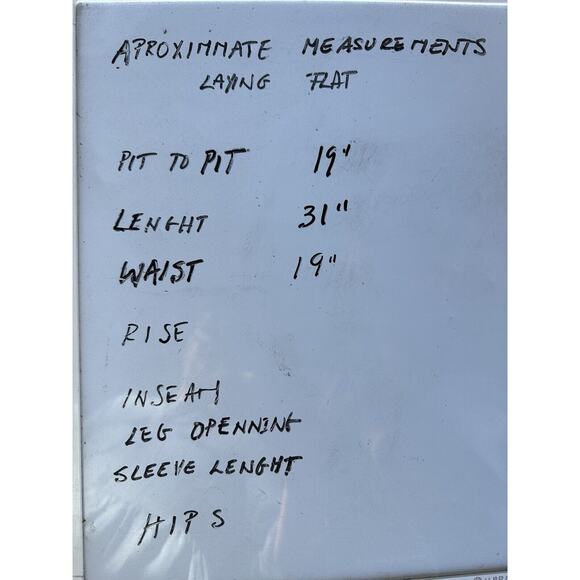 APROXIMMATE MEASUREMENTS
LAYING FLAT
PIT TO PIT 19"
LENGHT 31"
WAIST 19"
RISE
INSEAM
LEG OPENNING
SLEEVE LENGHT
HIPS